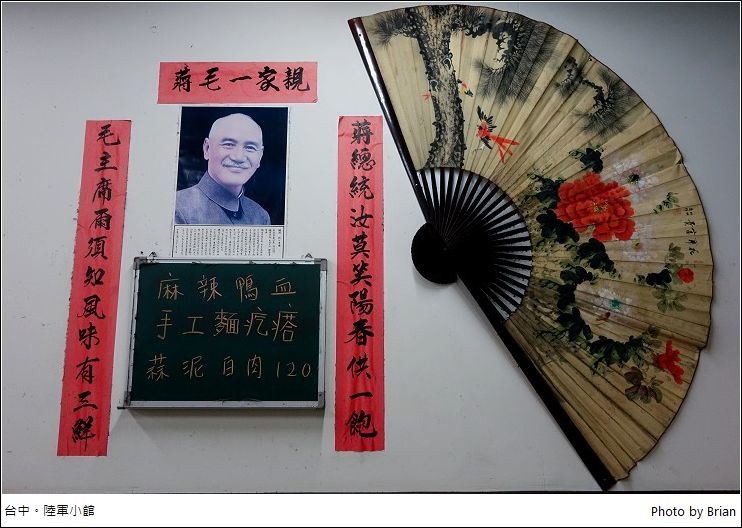 蔣毛一家親
蔣總統汝莫笑陽春供一飽
毛主席爾須知風味有三鮮
麻辣鴨血
手工麵疙瘩
蒜泥白肉120
台中。陸軍小館
Photo by Brian